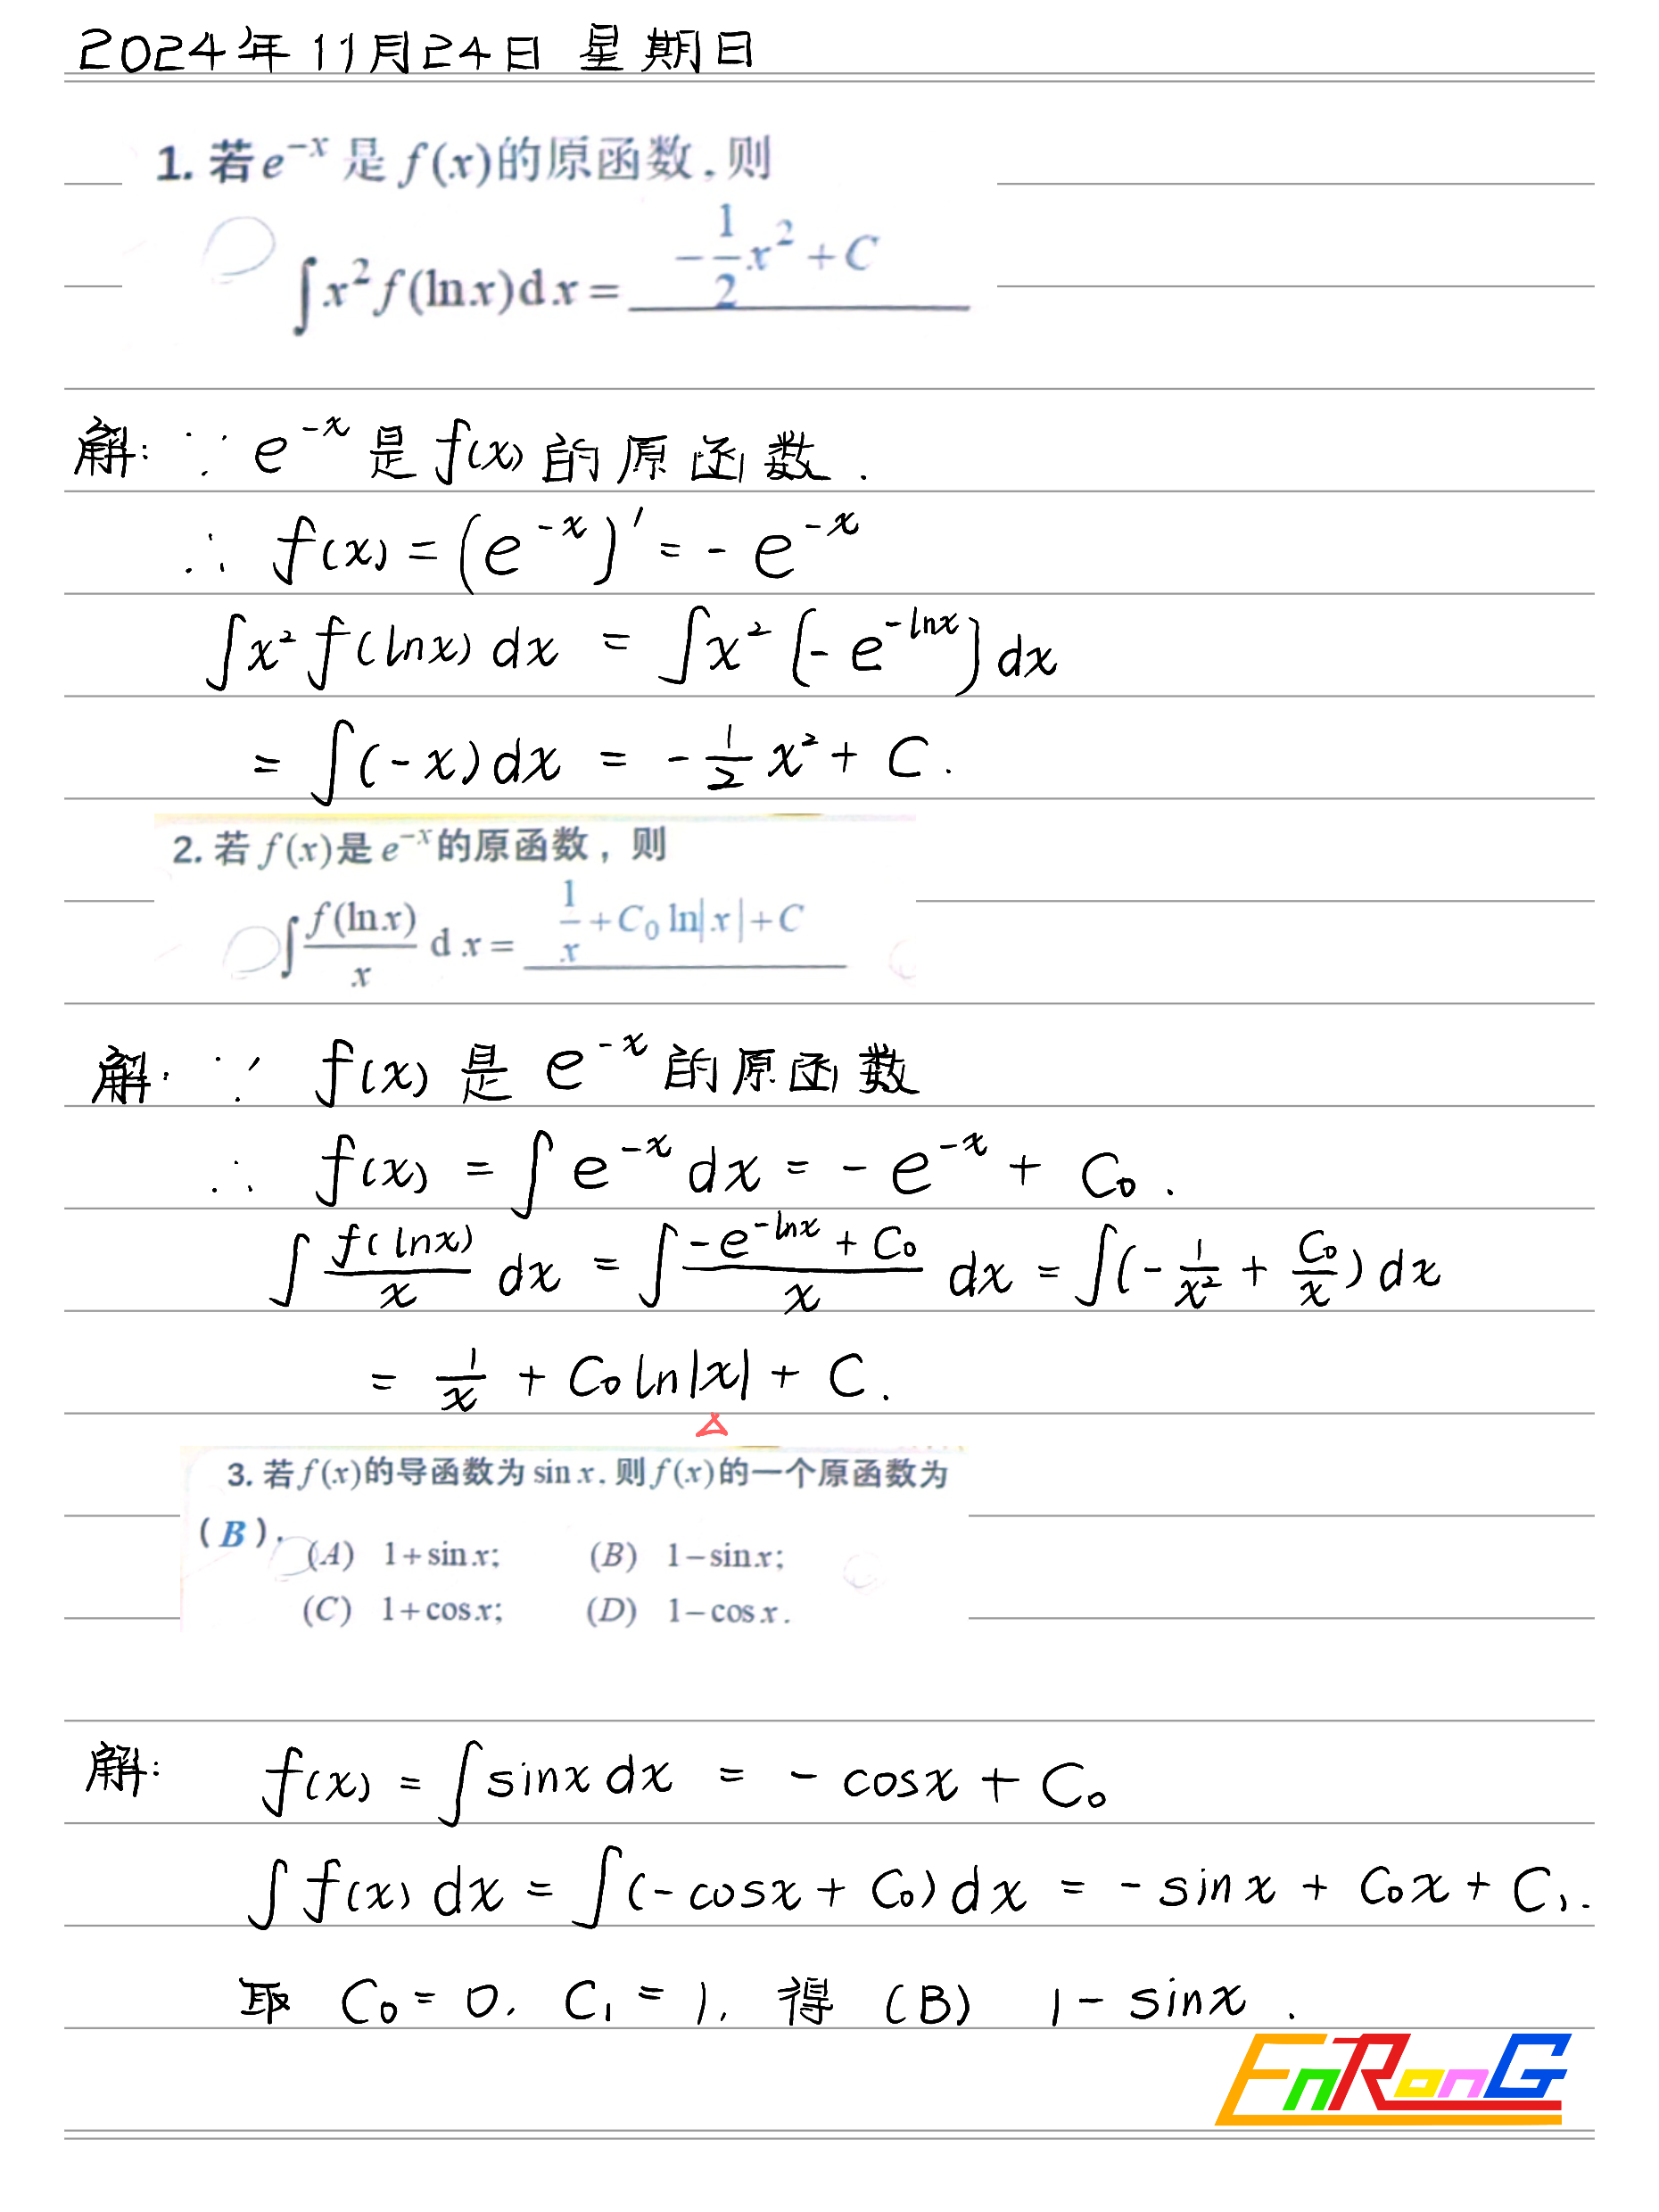 2024年11月24日 星期日
1. 若 e^{-x} 是 f(x)的原函数, 则
∫x²f(lnx)dx = -1/2 x² + C
解: ∵ e^{-x} 是 f(x) 的原函数.
∴ f(x) = (e^{-x})' = -e^{-x}
∫x² f(lnx) dx = ∫x² [-e^{-lnx}] dx
= ∫(-x)dx = -1/2 x² + C.
2. 若 f(x)是 e^{-x}的原函数, 则
∫f(lnx)/x dx = 1/x + C₀ ln|x| + C
解: ∵ f(x) 是 e^{-x} 的原函数
∴ f(x) = ∫e^{-x} dx = -e^{-x} + C₀.
∫f(lnx)/x dx = ∫(-e^{-lnx} + C₀)/x dx = ∫(-1/x² + C₀/x) dx
= 1/x + C₀ ln|x| + C.
3. 若 f(x)的导函数为 sin x, 则 f(x)的一个原函数为
(B).
(A) 1+sin x; (B) 1−sin x;
(C) 1+cos x; (D) 1−cos x.
解: f(x) = ∫sinx dx = -cosx + C₀
∫f(x) dx = ∫(-cosx + C₀)dx = -sinx + C₀x + C₁.
取 C₀ = 0, C₁ = 1, 得 (B) 1 - sinx.
EnRonG